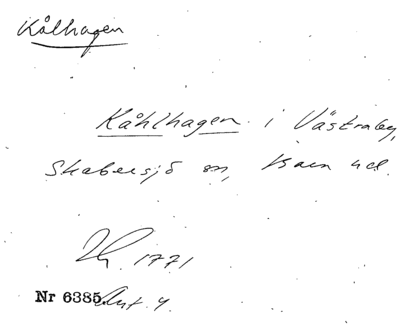 Kålhagen
Kåhlhagen i Västraby,
Skabersjö sn, Bara hd.
1771
Nr 6385. Akt 4.